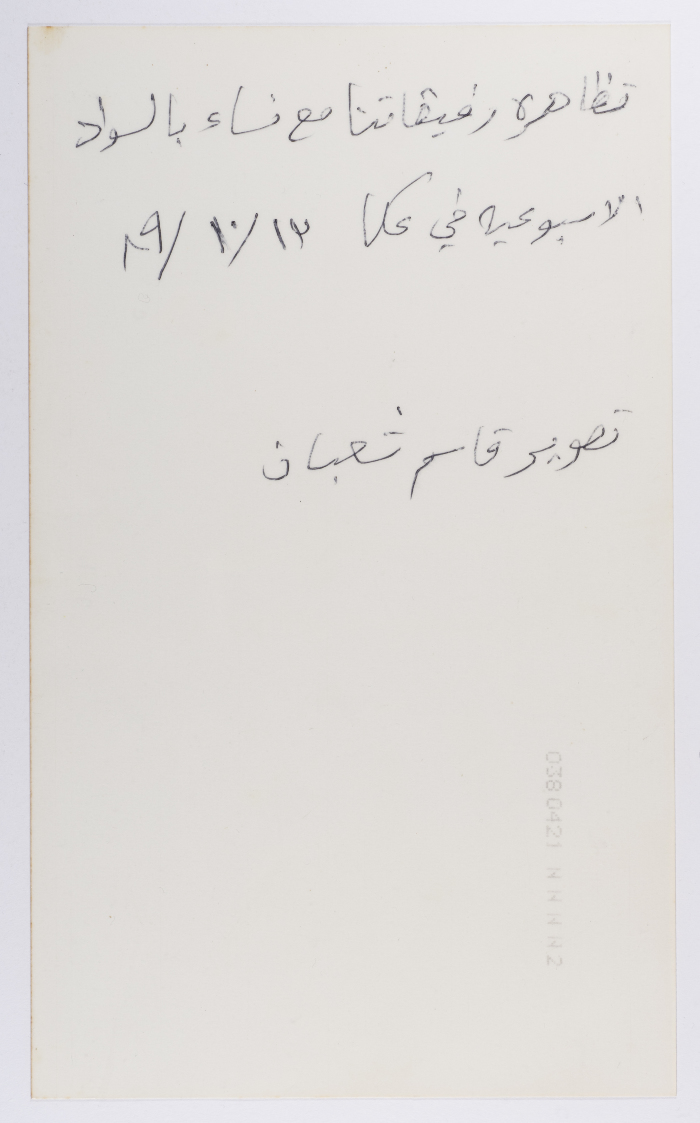 تظاهرة رفيقاتنا مع نساء بالسواد
الاسبوعية في عكا ١٣/ ١٠/ ٨٩
تصوير قاسم شعبان
038 0421 N N N N 2